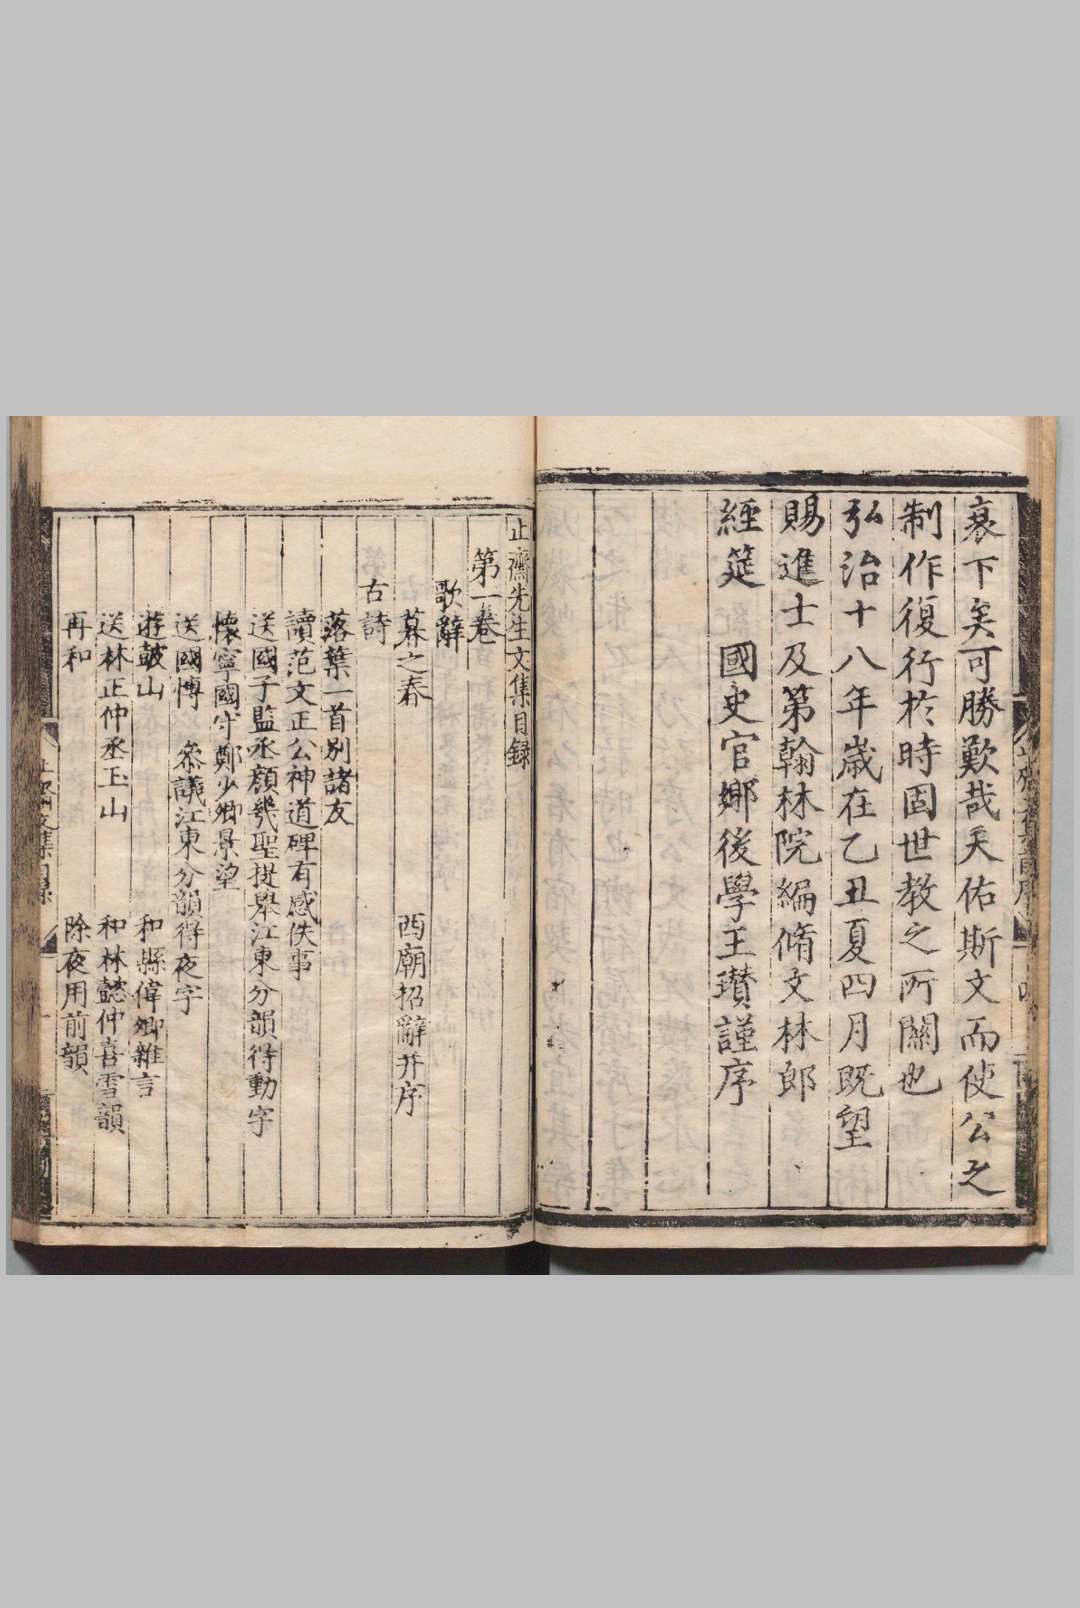 衰下矣可勝歎哉天佑斯文而使公之
制作復行於時固世教之所關也
弘治十八年歲在乙丑夏四月既望
賜進士及第翰林院編脩文林郎
經筵　國史官鄉後學王瓚謹序
止齋先生文集目録
第一卷
歌辭
暮之春　西廟招辭并序
古詩
落葉一首别諸友
讀范文正公神道碑有感佚事
送國子監丞顔幾聖提舉江東分韻得動字
懷寧國守鄭少卿景望
送國博　叅議江東分韻得夜字
遊鼓山　和縣偉卿雜言
送林正仲丞玉山　和林懿仲喜雪韻
再和　除夜用前韻